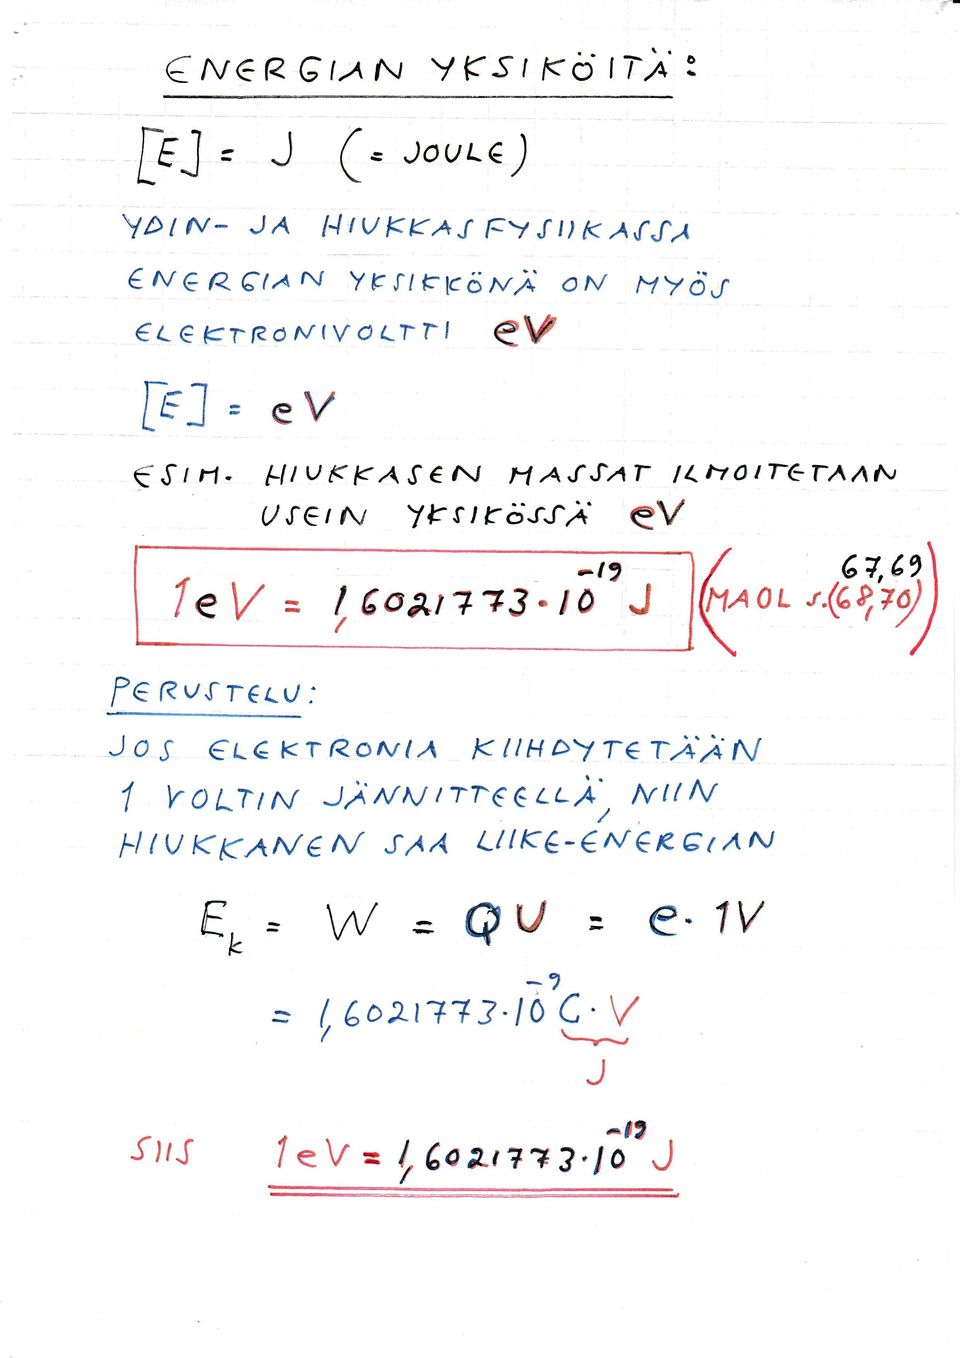 ENERGIAN YKSIKÖITÄ:
[E] = J (= JOULE)
YDIN- JA HIUKKASFYSIIKASSA
ENERGIAN YKSIKKÖNÄ ON MYÖS
ELEKTRONIVOLTTI eV
[E] = eV
ESIM. HIUKKASEN MASSAT ILMOITETAAN
USEIN YKSIKÖSSÄ eV
1eV = 1,6021773·10⁻¹⁹ J (MAOL s.(68,70)) 67,69
PERUSTELU:
JOS ELEKTRONIA KIIHDYTETÄÄN
1 VOLTIN JÄNNITTEELLÄ, NIIN
HIUKKANEN SAA LIIKE-ENERGIAN
Eₖ = W = QU = e·1V
= 1,6021773·10⁻⁹ C·V
J
SIIS 1eV = 1,6021773·10⁻¹⁹ J